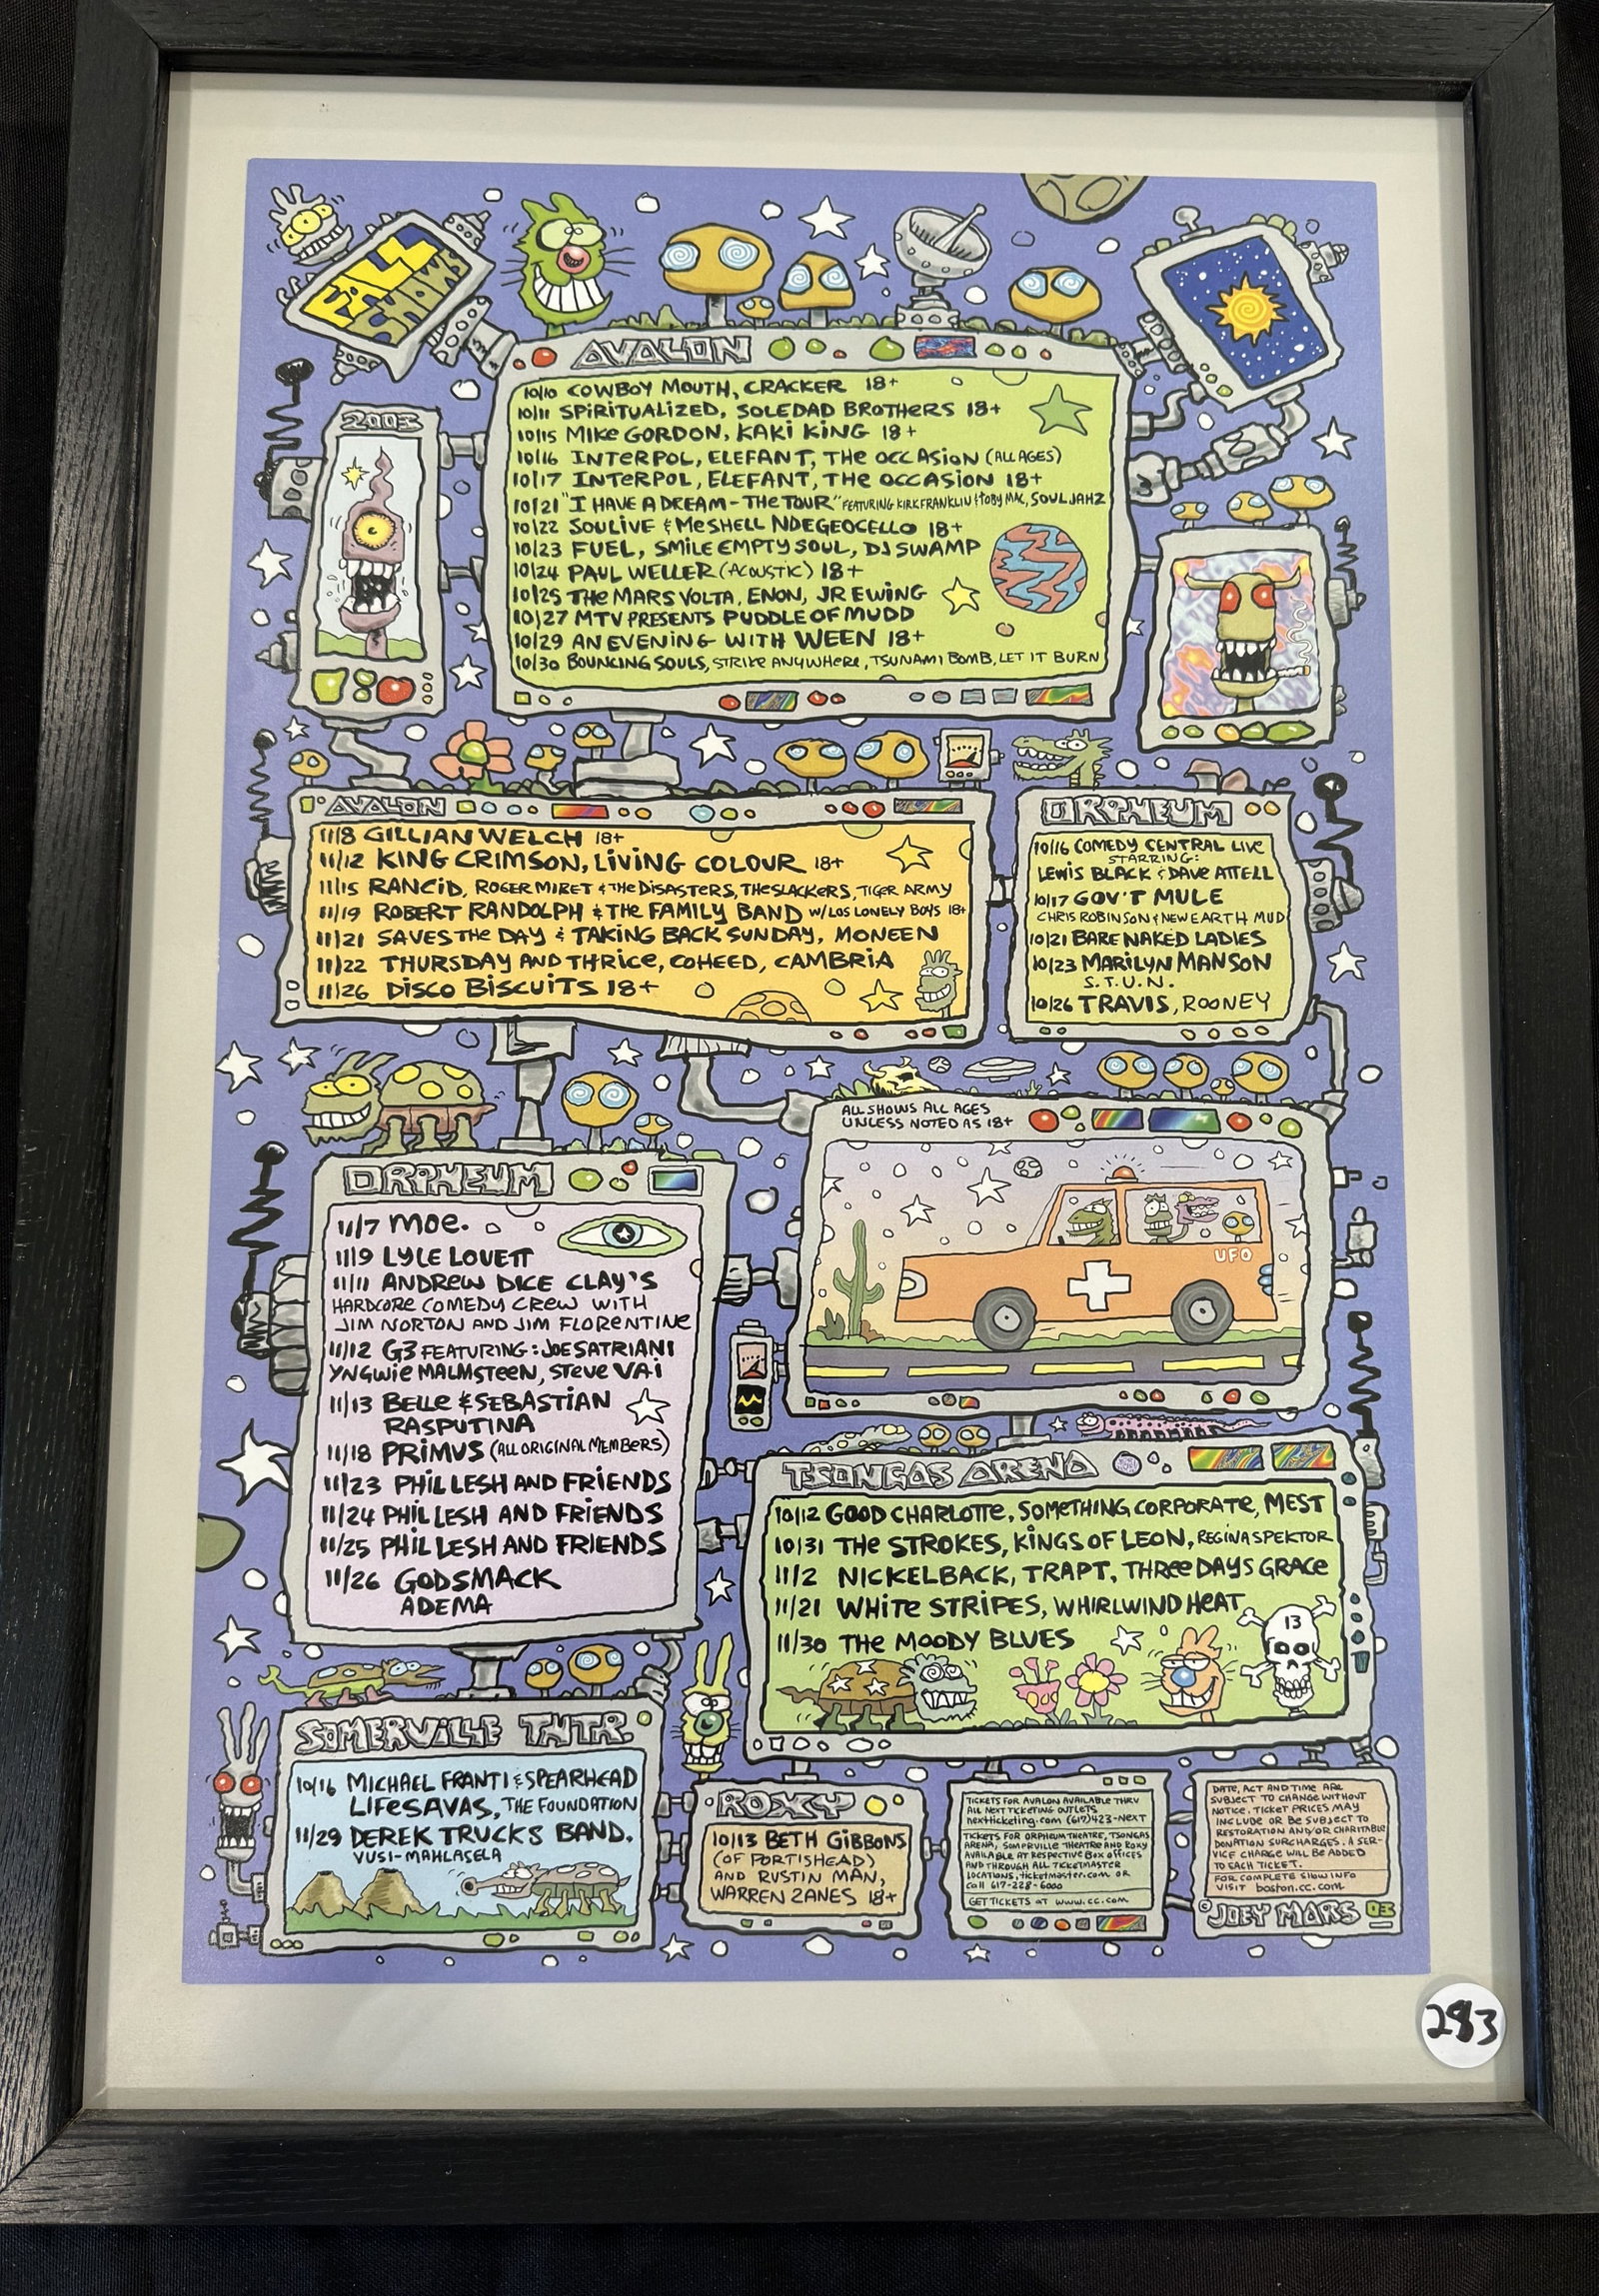 FALL
SHOWS
AVALON
10/10 COWBOY MOUTH, CRACKER 18+
10/11 SPIRITUALIZED, SOLEDAD BROTHERS 18+
10/15 MIKE GORDON, KAKI KING 18+
10/16 INTERPOL, ELEFANT, THE OCCASION (ALL AGES)
10/17 INTERPOL, ELEFANT, THE OCCASION 18+
10/21 "I HAVE A DREAM - THE TOUR" FEATURING KIRK FRANKLIN & TOBY MAC, SOUL JAHZ
10/22 SOULIVE & MESHELL NDEGEOCELLO 18+
10/23 FUEL, SMILE EMPTY SOUL, DJ SWAMP
10/24 PAUL WELLER (ACOUSTIC) 18+
10/25 THE MARS VOLTA, ENON, JR EWING
10/27 MTV PRESENTS PUDDLE OF MUDD
10/29 AN EVENING WITH WEEN 18+
10/30 BOUNCING SOULS, STRIKE ANYWHERE, TSUNAMI BOMB, LET IT BURN
2003
AVALON
11/8 GILLIAN WELCH 18+
11/12 KING CRIMSON, LIVING COLOUR 18+
11/15 RANCID, ROGER MIRET & THE DISASTERS, THE SLACKERS, TIGER ARMY
11/19 ROBERT RANDOLPH & THE FAMILY BAND W/LOS LONELY BOYS 18+
11/21 SAVES THE DAY & TAKING BACK SUNDAY, MONEEN
11/22 THURSDAY AND THRICE, COHEED, CAMBRIA
11/26 DISCO BISCUITS 18+
ORPHEUM
10/16 COMEDY CENTRAL LIVE
STARRING:
LEWIS BLACK & DAVE ATTELL
10/17 GOV'T MULE
CHRIS ROBINSON & NEW EARTH MUD
10/21 BARE NAKED LADIES
10/23 MARILYN MANSON
S.T.U.N.
10/26 TRAVIS, ROONEY
ALL SHOWS ALL AGES
UNLESS NOTED AS 18+
UFO
ORPHEUM
11/7 moe.
11/9 LYLE LOVETT
11/11 ANDREW DICE CLAY'S
HARDCORE COMEDY CREW WITH
JIM NORTON AND JIM FLORENTINE
11/12 G3 FEATURING: JOE SATRIANI
YNGWIE MALMSTEEN, STEVE VAI
11/13 BELLE & SEBASTIAN
RASPUTINA
11/18 PRIMUS (ALL ORIGINAL MEMBERS)
11/23 PHIL LESH AND FRIENDS
11/24 PHIL LESH AND FRIENDS
11/25 PHIL LESH AND FRIENDS
11/26 GODSMACK
ADEMA
TSONGAS ARENA
10/12 GOOD CHARLOTTE, SOMETHING CORPORATE, MEST
10/31 THE STROKES, KINGS OF LEON, REGINA SPEKTOR
11/2 NICKELBACK, TRAPT, THREE DAYS GRACE
11/21 WHITE STRIPES, WHIRLWIND HEAT
11/30 THE MOODY BLUES
13
SOMERVILLE THTR.
10/16 MICHAEL FRANTI & SPEARHEAD
LIFESAVAS, THE FOUNDATION
11/29 DEREK TRUCKS BAND.
VUSI-MAHLASELA
ROXY
10/13 BETH GIBBONS
(OF PORTISHEAD)
AND RUSTIN MAN,
WARREN ZANES 18+
TICKETS FOR AVALON AVAILABLE THRU
ALL NEXT TICKETING OUTLETS
nextticketing.com (617)423-NEXT
TICKETS FOR ORPHEUM THEATRE, TSONGAS
ARENA, SOMERVILLE THEATRE AND ROXY
AVAILABLE AT RESPECTIVE BOX OFFICES
AND THROUGH ALL TICKETMASTER
LOCATIONS, ticketmaster.com OR
Call 617-228-6000
GET TICKETS AT www.cc.com
DATE, ACT AND TIME ARE
SUBJECT TO CHANGE WITHOUT
NOTICE. TICKET PRICES MAY
INCLUDE OR BE SUBJECT TO
RESTORATION AND/OR CHARITABLE
DONATION SURCHARGES. A SER-
VICE CHARGE WILL BE ADDED
TO EACH TICKET.
FOR COMPLETE SHOW INFO
VISIT boston.cc.com
JOEY MARS 03
283